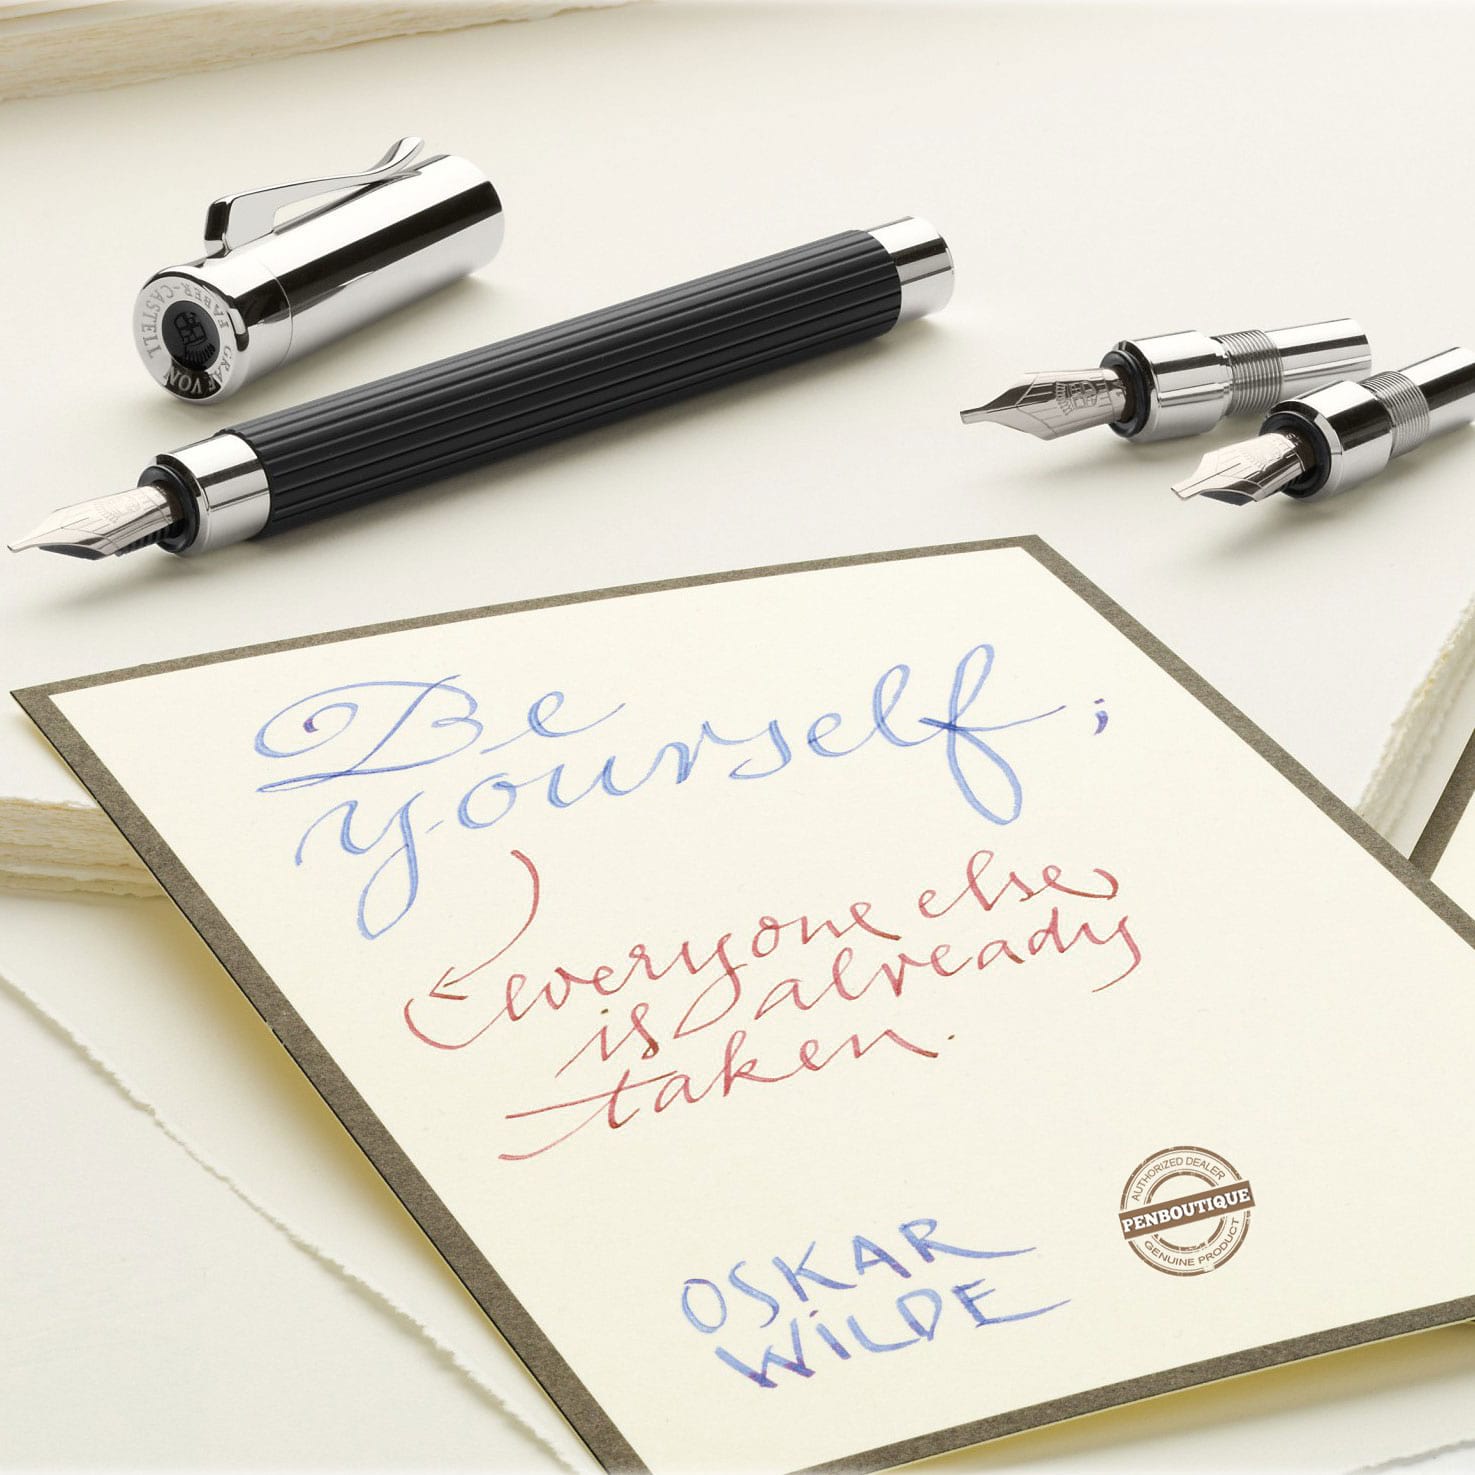 GRAF VON FABER-CASTELL
Be
yourself;
everyone else
is already
taken.
OSKAR
WiLDE
AUTHORIZED DEALER
PENBOUTIQUE
GENUINE PRODUCT